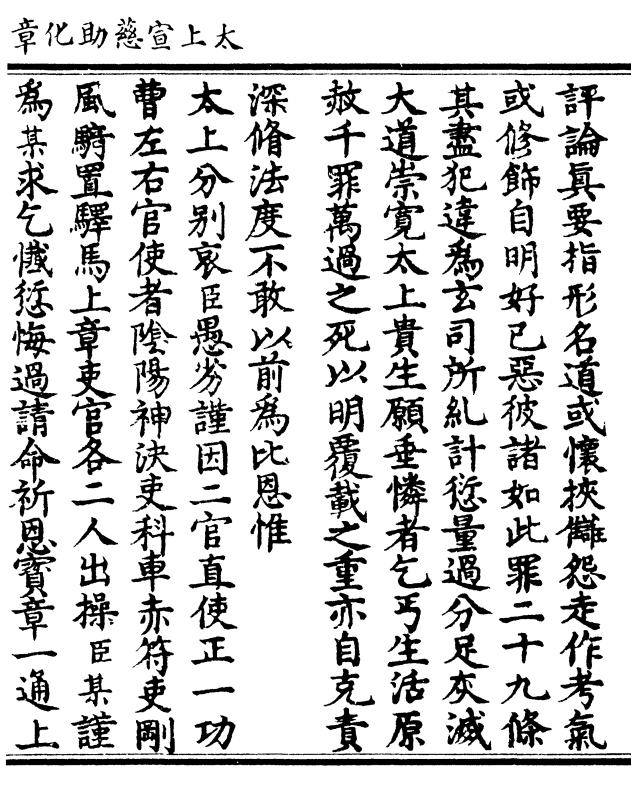 太上宣慈助化章
評論眞要指形名道或懷挾讎怨走作考氣
或修飾自明好已惡彼諸如此罪二十九條
其盡犯違爲玄司所糺計愆量過分足灰滅
大道崇寛太上貴生願垂憐者乞丐生活原
赦千罪萬過之死以明覆載之重亦自克責
深脩法度不敢以前爲比恩惟
太上分別哀臣愚劣謹因二官直使正一功
曹左右官使者陰陽神決吏科車赤符吏剛
風騎置驛馬上章吏官各二人出操臣某謹
爲某求乞懺愆悔過請命祈恩寳章一通上